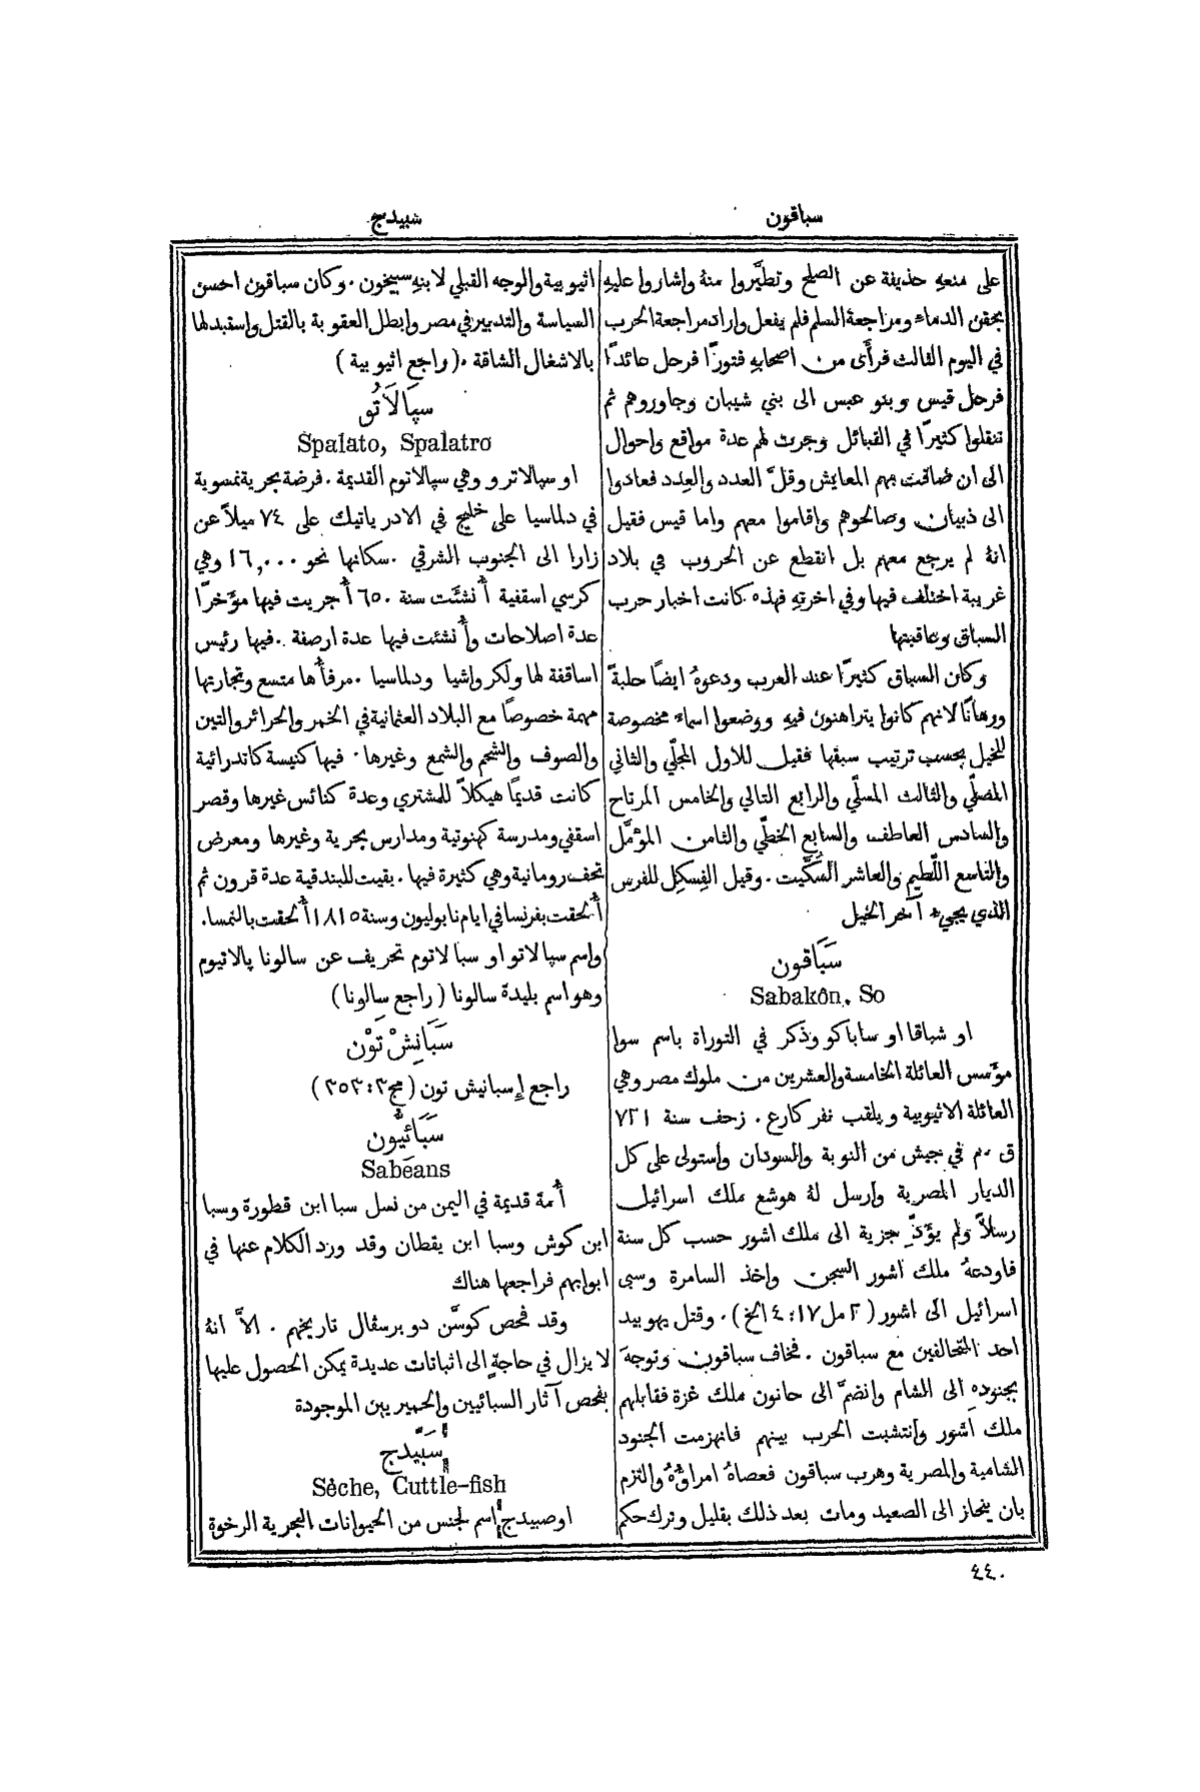 سباقون
شبيدج
على منعهِ حذيفة عن الصلح وتطيَّروا منهُ واشاروا عليهِ
بحقن الدماء ومراجعة السلم فلم يفعل واراد مراجعة الحرب
في اليوم الثالث فرأَى من اصحابهِ فتورًا فرحل عائدًا
فرحل قيس وبنو عبس الى بني شيبان وجاوروهم ثم
تنقلوا كثيرًا في القبائل وجرت لهم عدة مواقع واحوال
الى ان ضاقت بهم المعايش وقلَّ العدد والعِدد فعادوا
الى ذبيان وصالحوهم واقاموا معهم واما قيس فقيل
انهُ لم يرجع معهم بل انقطع عن الحروب في بلاد
غريبة اختلف فيها وفي اخرتهِ فهذه كانت اخبار حرب
السباق وعاقبتها
وكان السباق كثيرًا عند العرب ودعوهُ ايضًا حلبةً
ورهانًا لانهم كانوا يتراهنون فيهِ ووضعوا اسماء مخصوصة
للخيل بحسب ترتيب سبقها فقيل للاول المجلّي والثاني
المصلّي والثالث المسلّي والرابع التالي والخامس المرتاح
والسادس العاطف والسابع الخطّي والثامن المؤمَّل
والتاسع اللّطيم والعاشر السُكَّيت . وقيل الفِسكِل للفرس
الذي يجيء آخر الخيل
سَبَاقون
Sabakôn, So
او شباقا او ساباكو وذكر في التوراة باسم سوا
مؤسس العائلة الخامسة والعشرين من ملوك مصر وهي
العائلة الاثيوبية ويلقب نفر كارع . زحف سنة ٧٢١
ق . م في جيش من النوبة والسودان واستولى على كل
الديار المصرية وارسل لهُ هوشع ملك اسرائيل
رسلاً ولم يؤدِّ جزية الى ملك اشور حسب كل سنة
فاودعهُ ملك اشور السجن واخذ السامرة وسبى
اسرائيل الى اشور ( ٢ مل ١٧ : ٤ الخ ) . وقتل يهوبيد
احد المتحالفين مع سباقون . فخاف سباقون وتوجه
بجنودهِ الى الشام وانضمَّ الى حانون ملك غزة فقابلهم
ملك اشور وانتشبت الحرب بينهم فانهزمت الجنود
الشامية والمصرية وهرب سباقون فعصاهُ امراؤهُ والتزم
بان ينحاز الى الصعيد ومات بعد ذلك بقليل وترك حكم
اثيوبية والوجه القبلي لابنهِ سبيخون . وكان سباقون احسن
السياسة والتدبير في مصر وابطل العقوبة بالقتل واستبدلها
بالاشغال الشاقة . ( راجع اثيوبية )
سپَالاَتُو
Spalato, Spalatro
او سپالاترو وهي سپالاتوم القديمة . فرضة بحرية نمسوية
في دلماسيا على خليج في الادرياتيك على ٧٤ ميلاً عن
زارا الى الجنوب الشرقي . سكانها نحو ١٦,٠٠٠ وهي
كرسي اسقفية أُنشئت سنة ٦٥٠ أُجريت فيها مؤخرًا
عدة اصلاحات وأُنشئت فيها عدة ارصفة . فيها رئيس
اساقفة لها ولكرواشيا ودلماسيا . مرفأُها متسع وتجارتها
مهمة خصوصًا مع البلاد العثمانية في الخمر والحرائر والتين
والصوف والشحم والشمع وغيرها . فيها كنيسة كاتدرائية
كانت قديمًا هيكلاً للمشتري وعدة كنائس غيرها وقصر
اسقفي ومدرسة كهنوتية ومدارس بحرية وغيرها ومعرض
تحف رومانية وهي كثيرة فيها . بقيت للبندقية عدة قرون ثم
أُلحقت بفرنسا في ايام نابوليون وسنة ١٨١٥ أُلحقت بالنمسا .
واسم سپالاتو او سبالاتوم تحريف عن سالونا پالاتيوم
وهو اسم بليدة سالونا ( راجع سالونا )
سَبَانِشْ تَوْن
راجع إِسبانيش تون ( مج ٣ : ٣٥٣ )
سَبَائيُّون
Sabeans
أُمة قديمة في اليمن من نسل سبا ابن قطورة وسبا
ابن كوش وسبا ابن يقطان وقد ورد الكلام عنها في
ابوابهم فراجعها هناك
وقد فحص كوسَّن دو برسفال تاريخهم . الاَّ انهُ
لا يزال في حاجةٍ الى اثباتات عديدة يمكن الحصول عليها
بفحص آثار السبائيين والحميريين الموجودة
سَبَيْدَج
Sèche, Cuttle-fish
او صبيدج اسم لجنس من الحيوانات البحرية الرخوة
٤٤٠